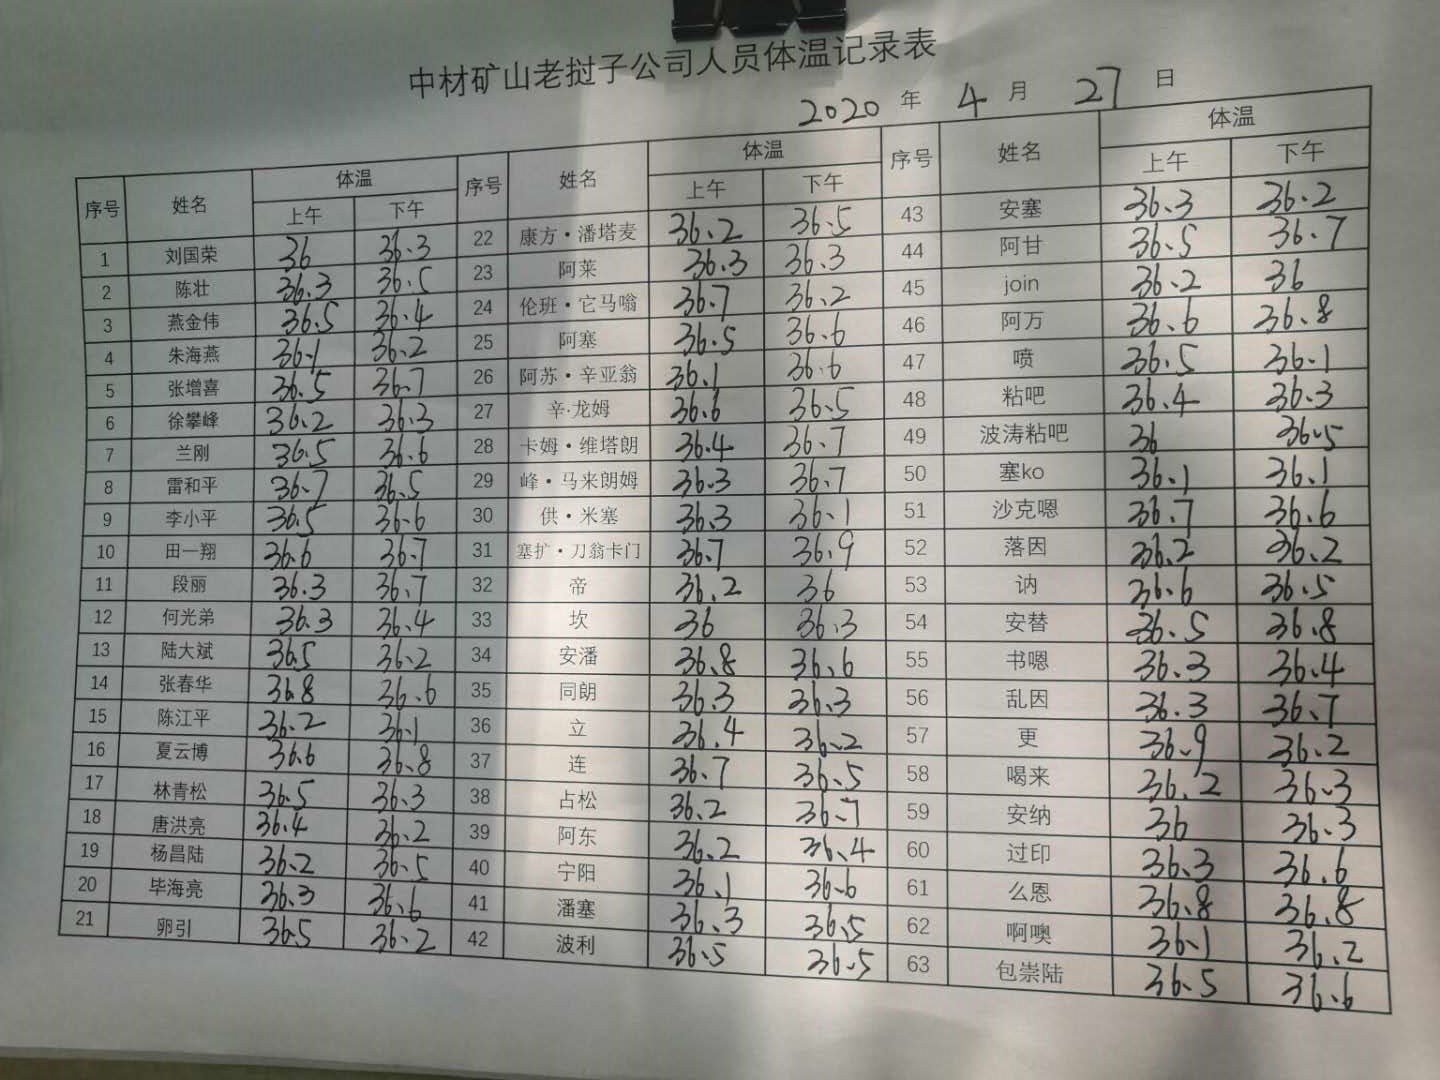 中材矿山老挝子公司人员体温记录表
2020 年 4 月 27 日
序号 姓名 体温 序号 姓名 体温 序号 姓名 体温
上午 下午 上午 下午 上午 下午
1 刘国荣 36 36.3 22 康方·潘塔麦 36.2 36.5 43 安塞 36.3 36.2
2 陈壮 36.3 36.5 23 阿莱 36.3 36.3 44 阿甘 36.5 36.7
3 燕金伟 36.5 36.4 24 伦班·它马嗡 36.7 36.2 45 join 36.2 36
4 朱海燕 36.1 36.2 25 阿塞 36.5 36.6 46 阿万 36.6 36.8
5 张增喜 36.5 36.7 26 阿苏·辛亚翁 36.1 36.6 47 喷 36.5 36.1
6 徐攀峰 36.2 36.3 27 辛·龙姆 36.6 36.5 48 粘吧 36.4 36.3
7 兰刚 36.5 36.6 28 卡姆·维塔朗 36.4 36.7 49 波涛粘吧 36 36.5
8 雷和平 36.7 36.5 29 峰·马来朗姆 36.3 36.7 50 塞ko 36.1 36.1
9 李小平 36.5 36.6 30 供·米塞 36.3 36.1 51 沙克嗯 36.7 36.6
10 田一翔 36.6 36.7 31 塞扩·刀翁卡门 36.7 36.9 52 落因 36.2 36.2
11 段丽 36.3 36.7 32 帝 36.2 36 53 讷 36.6 36.5
12 何光弟 36.3 36.4 33 坎 36 36.3 54 安替 36.5 36.8
13 陆大斌 36.5 36.2 34 安潘 36.8 36.6 55 书嗯 36.3 36.4
14 张春华 36.8 36.6 35 同朗 36.3 36.3 56 乱因 36.3 36.7
15 陈江平 36.2 36.1 36 立 36.4 36.2 57 更 36.9 36.2
16 夏云博 36.6 36.8 37 连 36.7 36.5 58 喝来 36.2 36.3
17 林青松 36.5 36.3 38 占松 36.2 36.7 59 安纳 36 36.3
18 唐洪亮 36.4 36.2 39 阿东 36.2 36.4 60 过印 36.3 36.6
19 杨昌陆 36.2 36.5 40 宁阳 36.1 36.6 61 么恩 36.8 36.8
20 毕海亮 36.3 36.6 41 潘塞 36.3 36.5 62 啊噢 36.1 36.2
21 卵引 36.5 36.2 42 波利 36.5 36.5 63 包崇陆 36.5 36.6